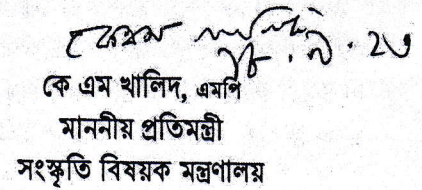 ১৮.৯.২৩
কে এম খালিদ, এমপি
মাননীয় প্রতিমন্ত্রী
সংস্কৃতি বিষয়ক মন্ত্রণালয়